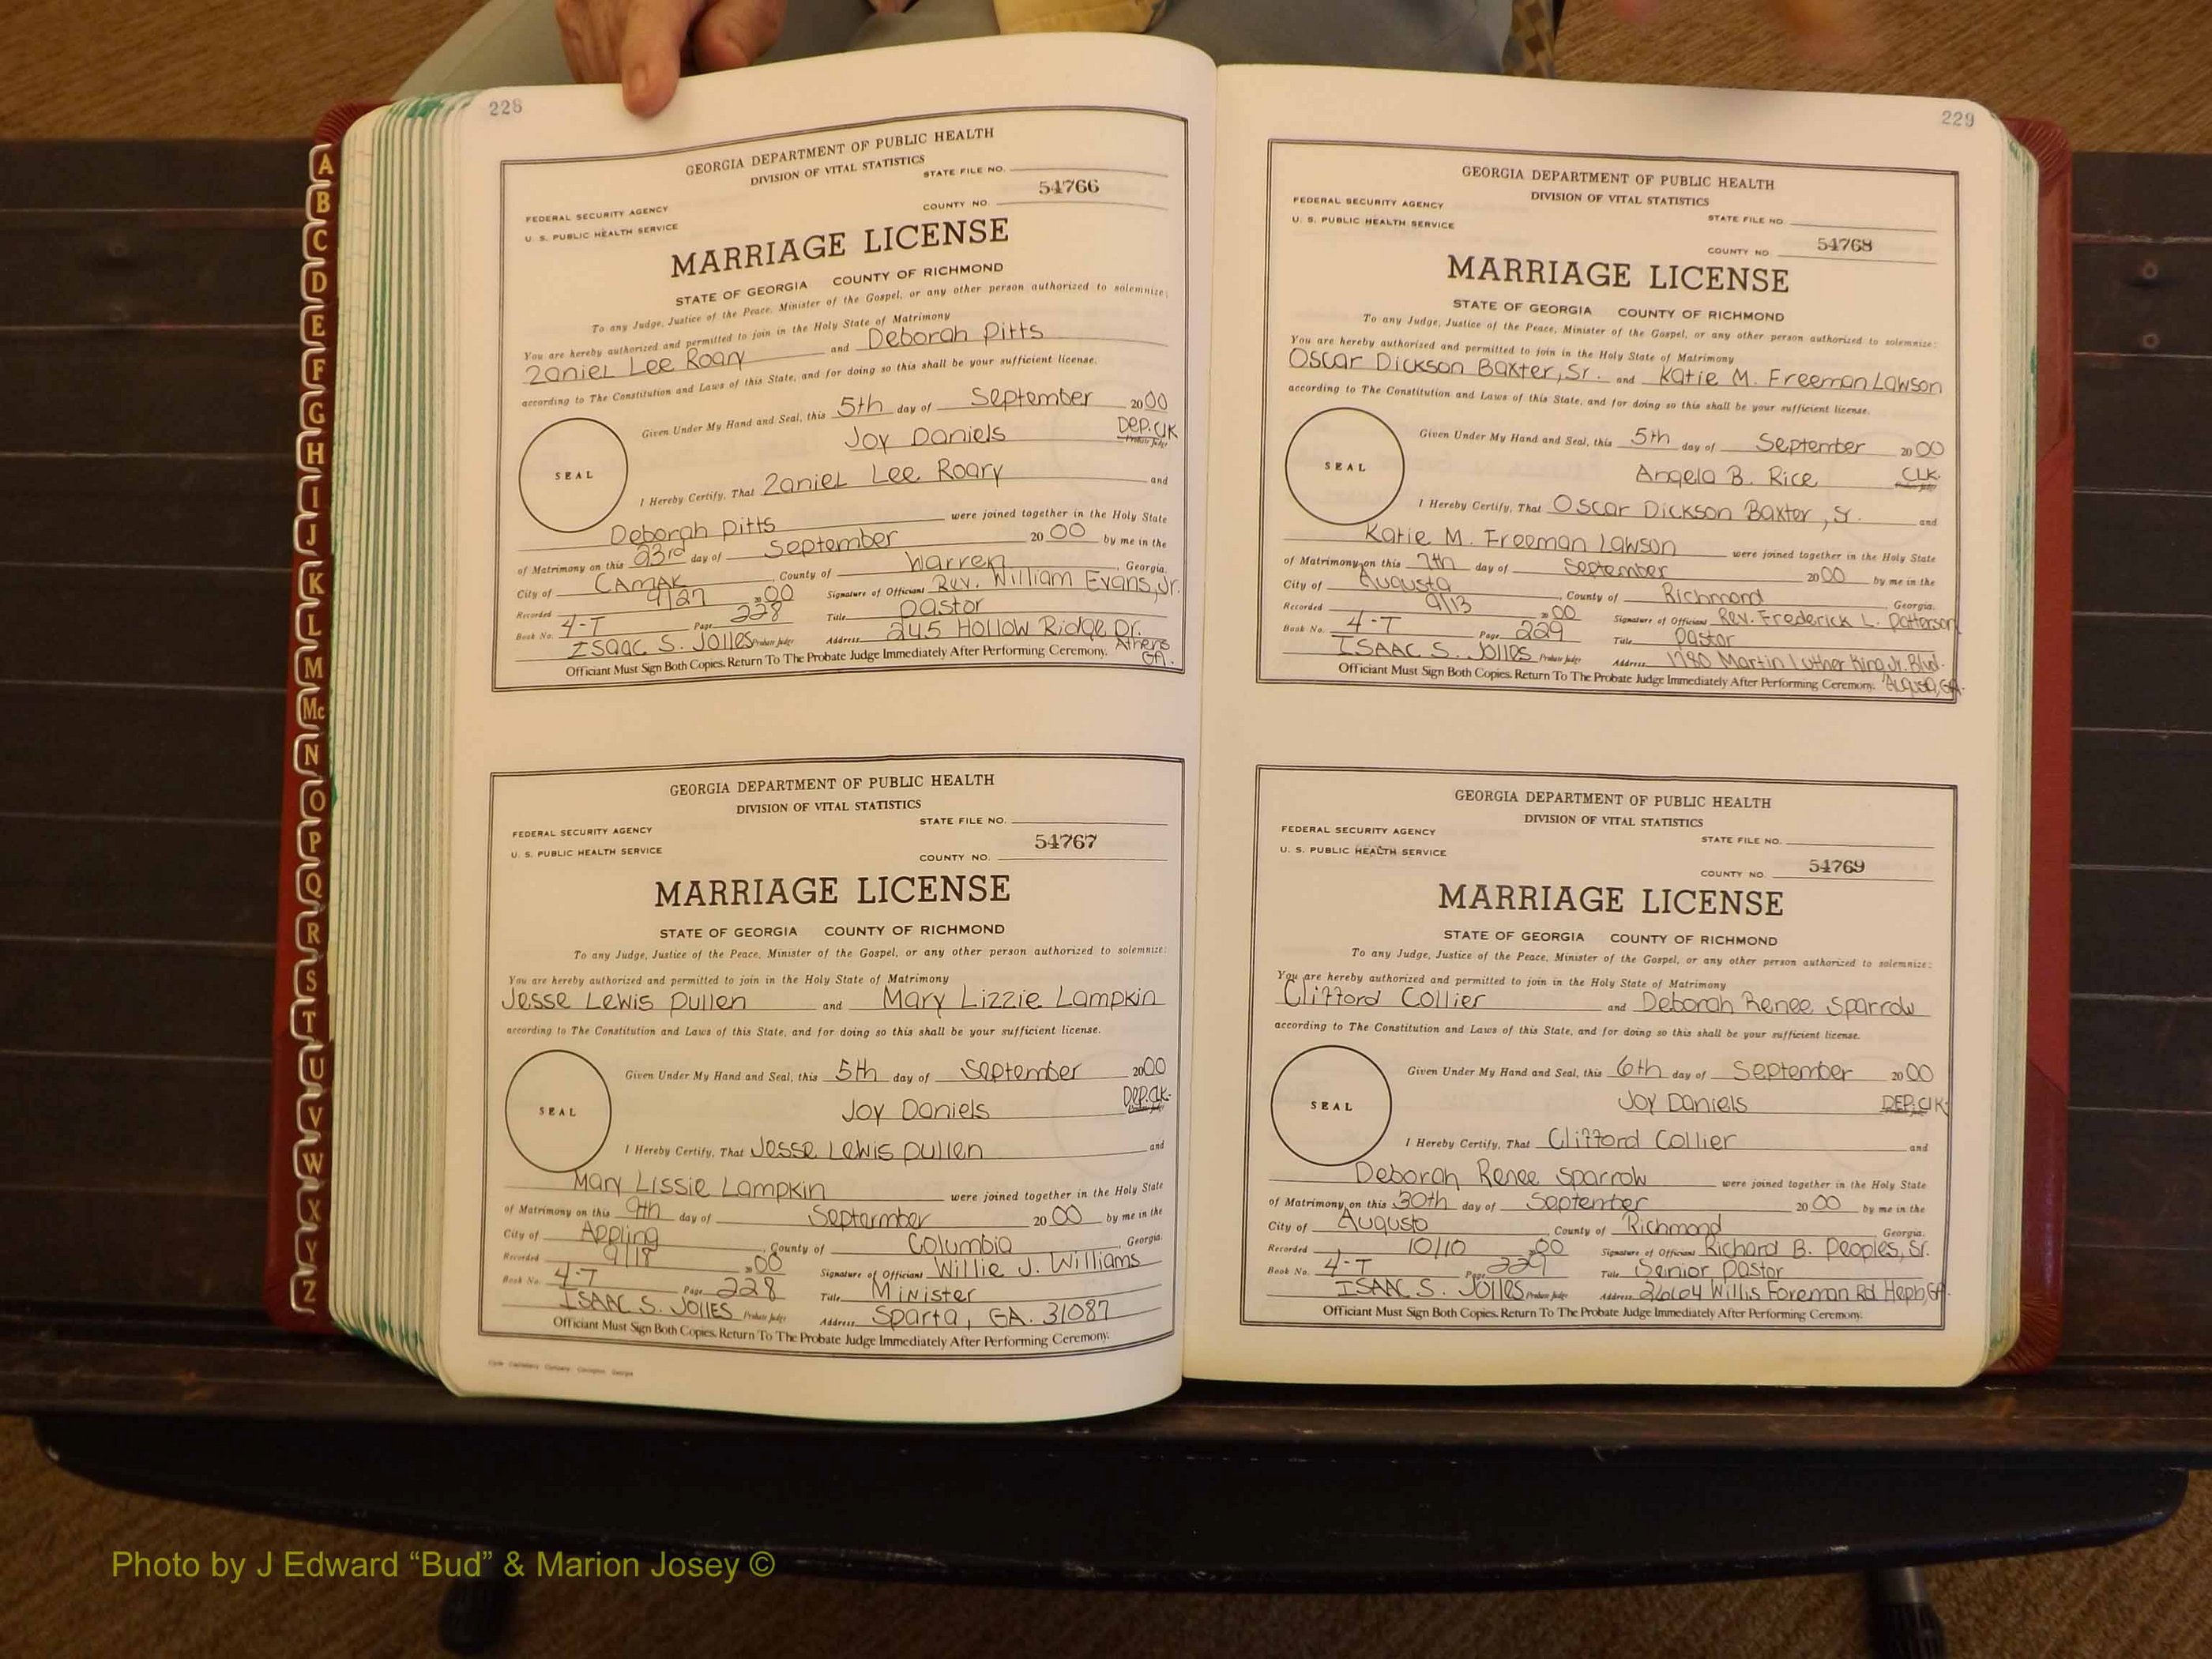 A
B
C
D
E
F
G
H
I
J
K
L
M
Mc
N
O
P
Q
R
S
T
U
V
W
X
Y
Z
228
GEORGIA DEPARTMENT OF PUBLIC HEALTH
DIVISION OF VITAL STATISTICS
STATE FILE NO.
54766
FEDERAL SECURITY AGENCY
COUNTY NO.
U. S. PUBLIC HEALTH SERVICE
MARRIAGE LICENSE
STATE OF GEORGIA COUNTY OF RICHMOND
To any Judge, Justice of the Peace, Minister of the Gospel, or any other person authorized to solemnize:
You are hereby authorized and permitted to join in the Holy State of Matrimony
Zaniel Lee Roary and Deborah Pitts
according to The Constitution and Laws of this State, and for doing so this shall be your sufficient license.
Given Under My Hand and Seal, this 5th day of September 2000
Joy Daniels DEP. Clk
Probate Judge
SEAL
I Hereby Certify, That Zaniel Lee Roary and
Deborah Pitts were joined together in the Holy State
of Matrimony on this 23rd day of September 20 00 by me in the
City of CAMAK, County of Warren, Georgia.
Recorded 9/27 20 00 Signature of Officiant Rev. William Evans, Jr.
Book No. 4-T Page 228 Title Pastor
ISAAC S. JOLLES Probate Judge Address 245 Hollow Ridge Dr. Athens GA.
Officiant Must Sign Both Copies. Return To The Probate Judge Immediately After Performing Ceremony.
GEORGIA DEPARTMENT OF PUBLIC HEALTH
DIVISION OF VITAL STATISTICS
STATE FILE NO.
FEDERAL SECURITY AGENCY
54767
U. S. PUBLIC HEALTH SERVICE
COUNTY NO.
MARRIAGE LICENSE
STATE OF GEORGIA COUNTY OF RICHMOND
To any Judge, Justice of the Peace, Minister of the Gospel, or any other person authorized to solemnize:
You are hereby authorized and permitted to join in the Holy State of Matrimony
Jesse Lewis Pullen and Mary Lizzie Lampkin
according to The Constitution and Laws of this State, and for doing so this shall be your sufficient license.
Given Under My Hand and Seal, this 5th day of September 2000
Joy Daniels DEP. Clk.
Probate Judge
SEAL
I Hereby Certify, That Jesse Lewis Pullen and
Mary Lissie Lampkin were joined together in the Holy State
of Matrimony on this 9th day of Septermber 20 00 by me in the
City of Appling, County of Columbia, Georgia.
Recorded 9/18 20 00 Signature of Officiant Willie J. Williams
Book No. 4-T Page 228 Title Minister
ISAAC S. JOLLES Probate Judge Address Sparta, GA. 31087
Officiant Must Sign Both Copies. Return To The Probate Judge Immediately After Performing Ceremony.
229
GEORGIA DEPARTMENT OF PUBLIC HEALTH
DIVISION OF VITAL STATISTICS
FEDERAL SECURITY AGENCY
STATE FILE NO.
U. S. PUBLIC HEALTH SERVICE
COUNTY NO. 54768
MARRIAGE LICENSE
STATE OF GEORGIA COUNTY OF RICHMOND
To any Judge, Justice of the Peace, Minister of the Gospel, or any other person authorized to solemnize:
You are hereby authorized and permitted to join in the Holy State of Matrimony
Oscar Dickson Baxter, Sr. and Katie M. Freeman Lawson
according to The Constitution and Laws of this State, and for doing so this shall be your sufficient license.
Given Under My Hand and Seal, this 5th day of September 20 00
Angela B. Rice CLK.
Probate Judge
SEAL
I Hereby Certify, That Oscar Dickson Baxter, Sr. and
Katie M. Freeman Lawson were joined together in the Holy State
of Matrimony on this 7th day of September 20 00 by me in the
City of Augusta, County of Richmond Georgia.
Recorded 9/13 20 00 Signature of Officiant Rev. Frederick L. Patterson
Book No. 4-T Page 229 Title Pastor
ISAAC S. JOLLES Probate Judge Address 1780 Martin Luther King Jr. Blvd. Augusta, GA.
Officiant Must Sign Both Copies. Return To The Probate Judge Immediately After Performing Ceremony.
GEORGIA DEPARTMENT OF PUBLIC HEALTH
DIVISION OF VITAL STATISTICS
FEDERAL SECURITY AGENCY
STATE FILE NO.
U. S. PUBLIC HEALTH SERVICE
COUNTY NO. 54769
MARRIAGE LICENSE
STATE OF GEORGIA COUNTY OF RICHMOND
To any Judge, Justice of the Peace, Minister of the Gospel, or any other person authorized to solemnize:
You are hereby authorized and permitted to join in the Holy State of Matrimony
Clifford Collier and Deborah Renee Sparrow
according to The Constitution and Laws of this State, and for doing so this shall be your sufficient license.
Given Under My Hand and Seal, this 6th day of September 20 00
Joy Daniels DEP. Clk
SEAL
I Hereby Certify, That Clifford Collier and
Deborah Renee Sparrow were joined together in the Holy State
of Matrimony on this 30th day of September 20 00 by me in the
City of Augusta, County of Richmond Georgia.
Recorded 10/10 20 00 Signature of Officiant Richard B. Peoples, Sr.
Book No. 4-T Page 229 Title Senior Pastor
ISAAC S. JOLLES Probate Judge Address 2664 Willis Foreman Rd Heph, GA.
Officiant Must Sign Both Copies. Return To The Probate Judge Immediately After Performing Ceremony.
Photo by J Edward “Bud” & Marion Josey ©